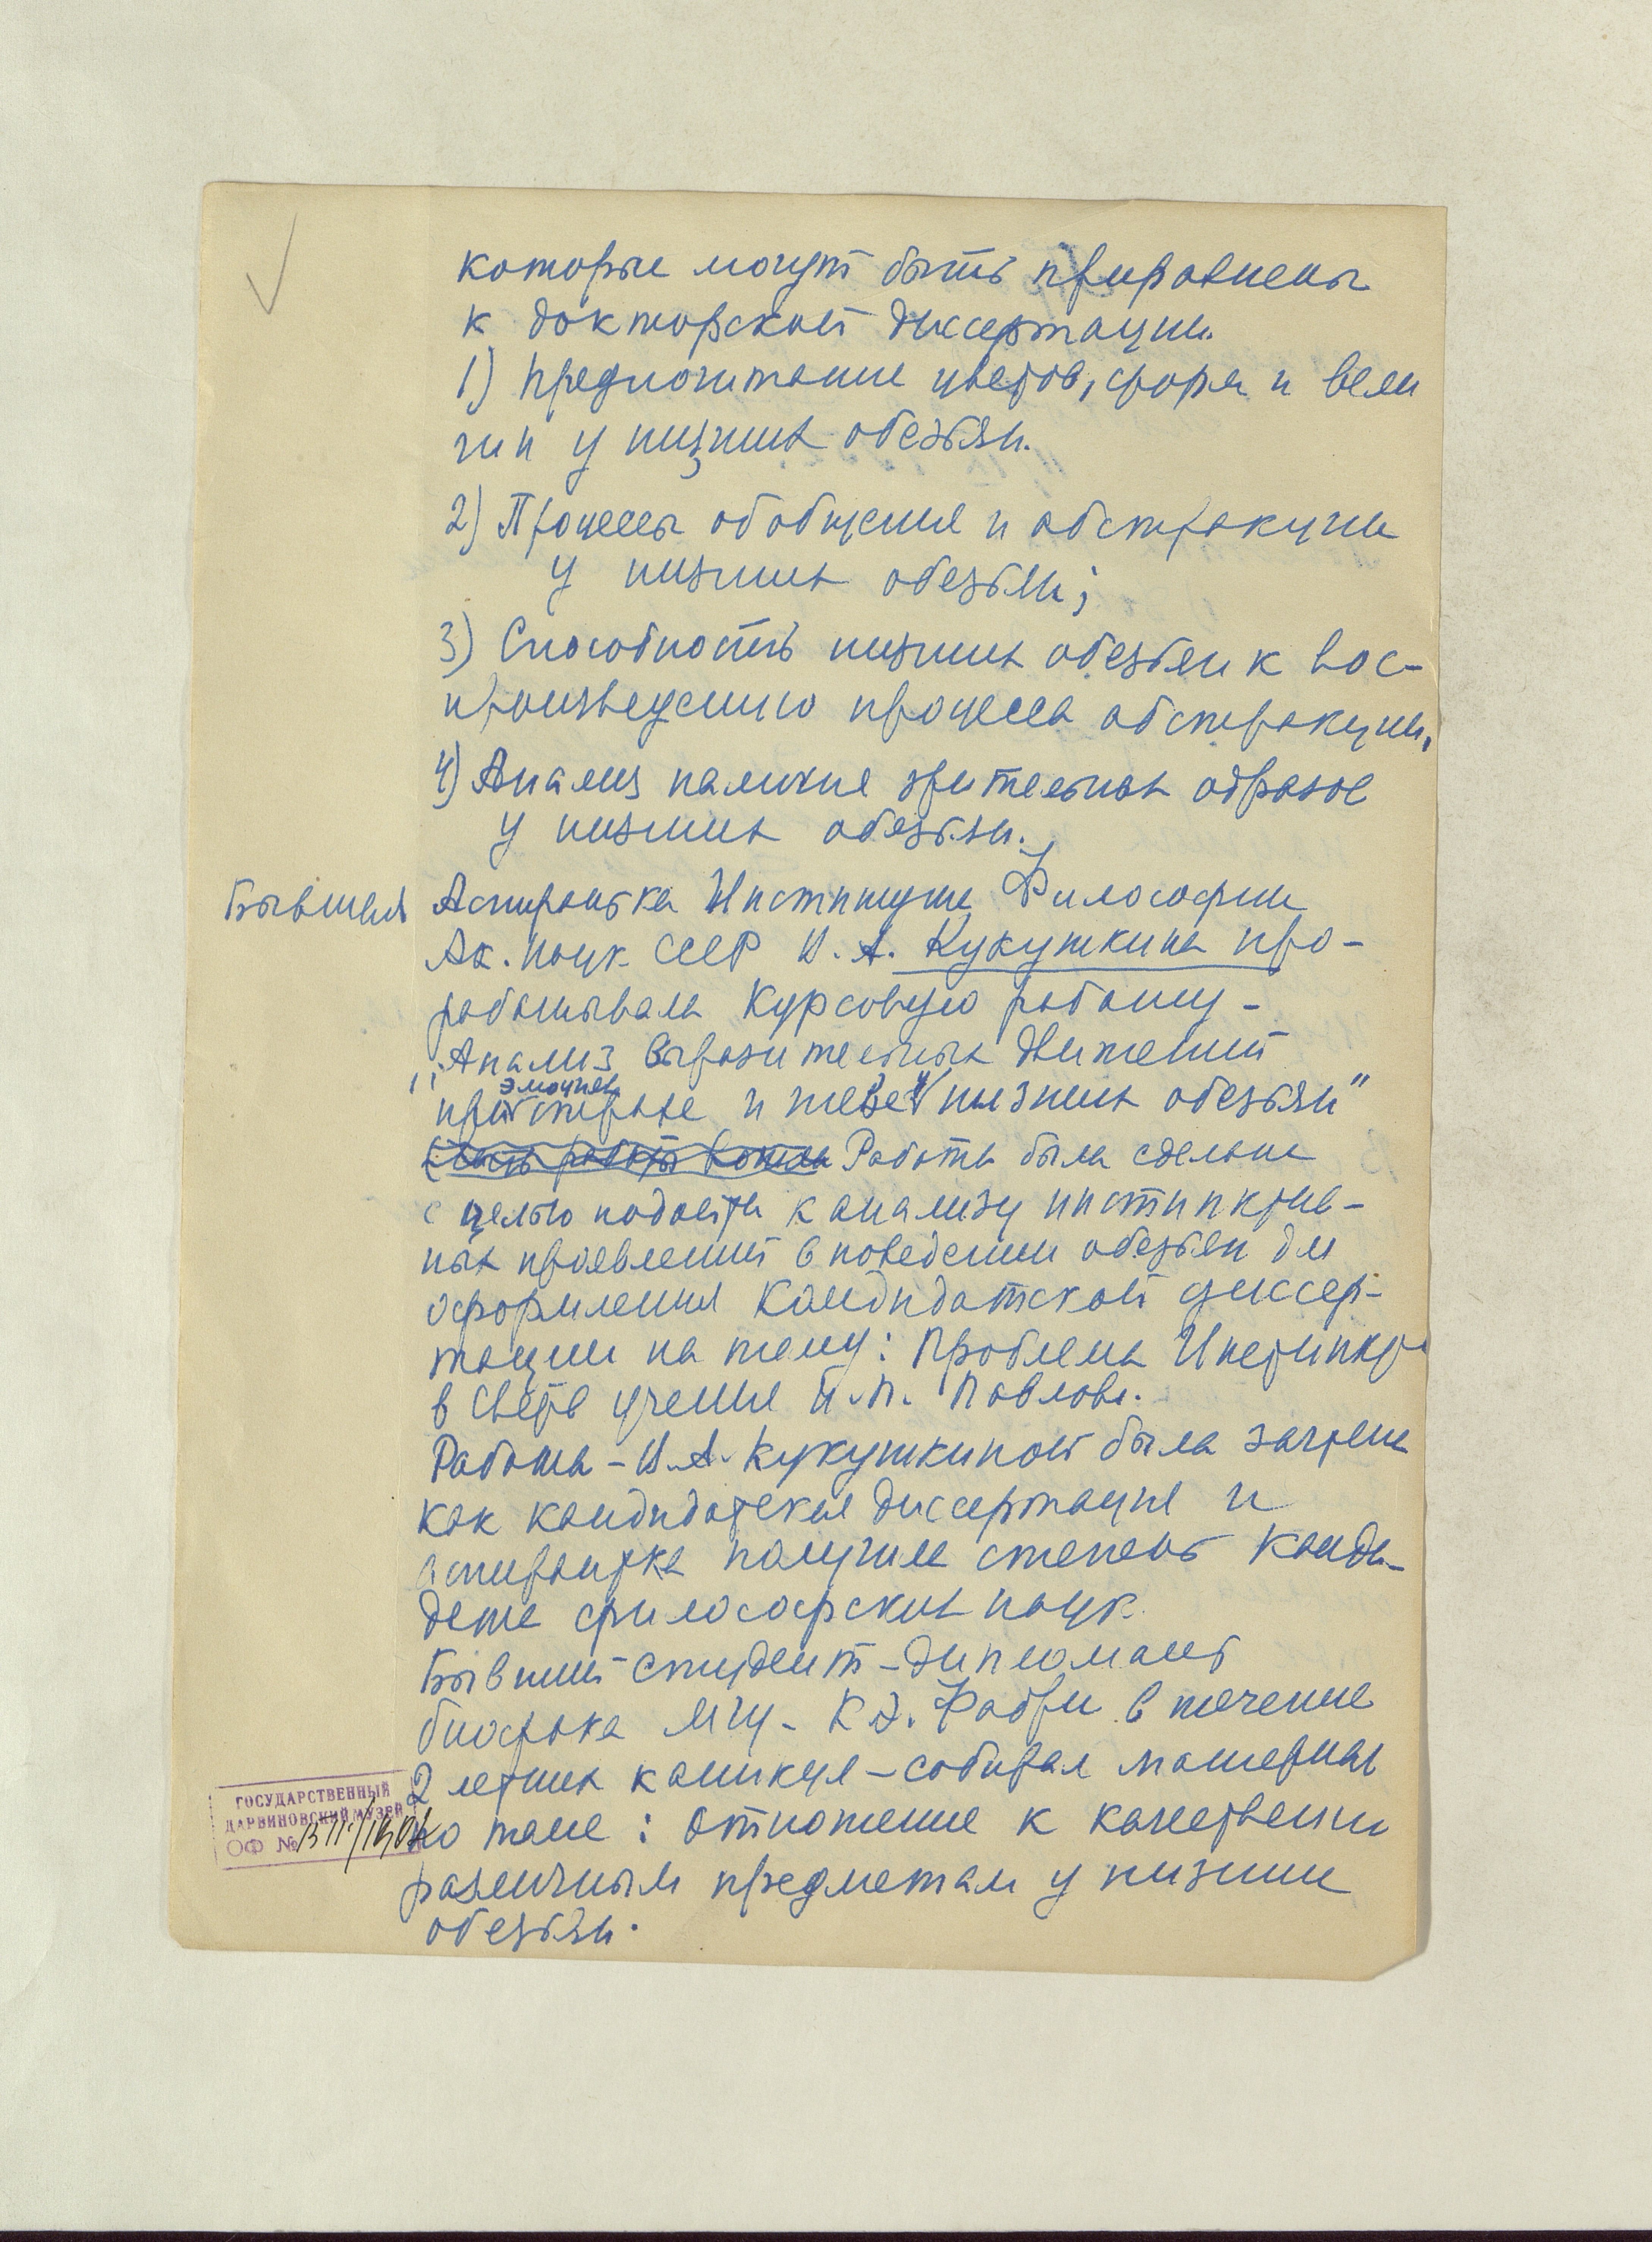 которые могут быть приравнены
к докторской диссертации.
1) Предпочитание цветов, форм и вели
чин у низших обезьян.
2) Процессы обобщения и абстракции
у низших обезьян;
3) Способность низших обезьян к вос-
произведению процесса абстракции.
4) Анализ наличия зрительных образов
у низших обезьян.
Бывшая Аспирантка Института Философии
Ак. Наук СССР Н. А. Кукушкина про-
рабатывала Курсовую работу -
"Анализ выразительных движений
эмоциях
при страхе и гневе у низших обезьян"
Работа была сделана
с целью подойти к анализу инстинктив-
ных проявлений в поведении обезьян для
оформления Кандидатской диссер-
тации на тему: Проблема Инстинкта
в свете учения И. П. Павлова.
Работа - Н. А. Кукушкиной была зачтена
как кандидатская диссертация и
аспирантка получила степень Канди-
дата философских наук.
Бывший студент-дипломант
биофака МГУ - К Э. Фабри в течение
2 летних каникул - собирал материал
по теме: Отношение к качественно
различным предметам у низших
обезьян.
ГОСУДАРСТВЕННЫЙ
ДАРВИНОВСКИЙ МУЗЕЙ
ОФ №